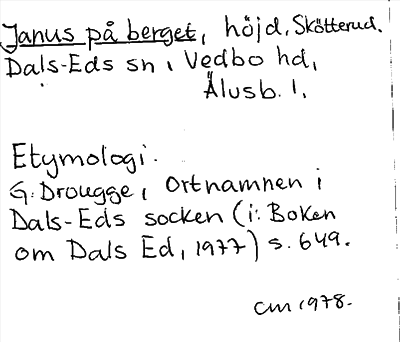 Janus på berget, höjd, Skötterud.
Dals-Eds sn, Vedbo hd,
Älvsb. l.
Etymologi.
G. Drougge, Ortnamnen i
Dals-Eds socken (i: Boken
om Dals Ed, 1977) s. 649.
CM 1978.